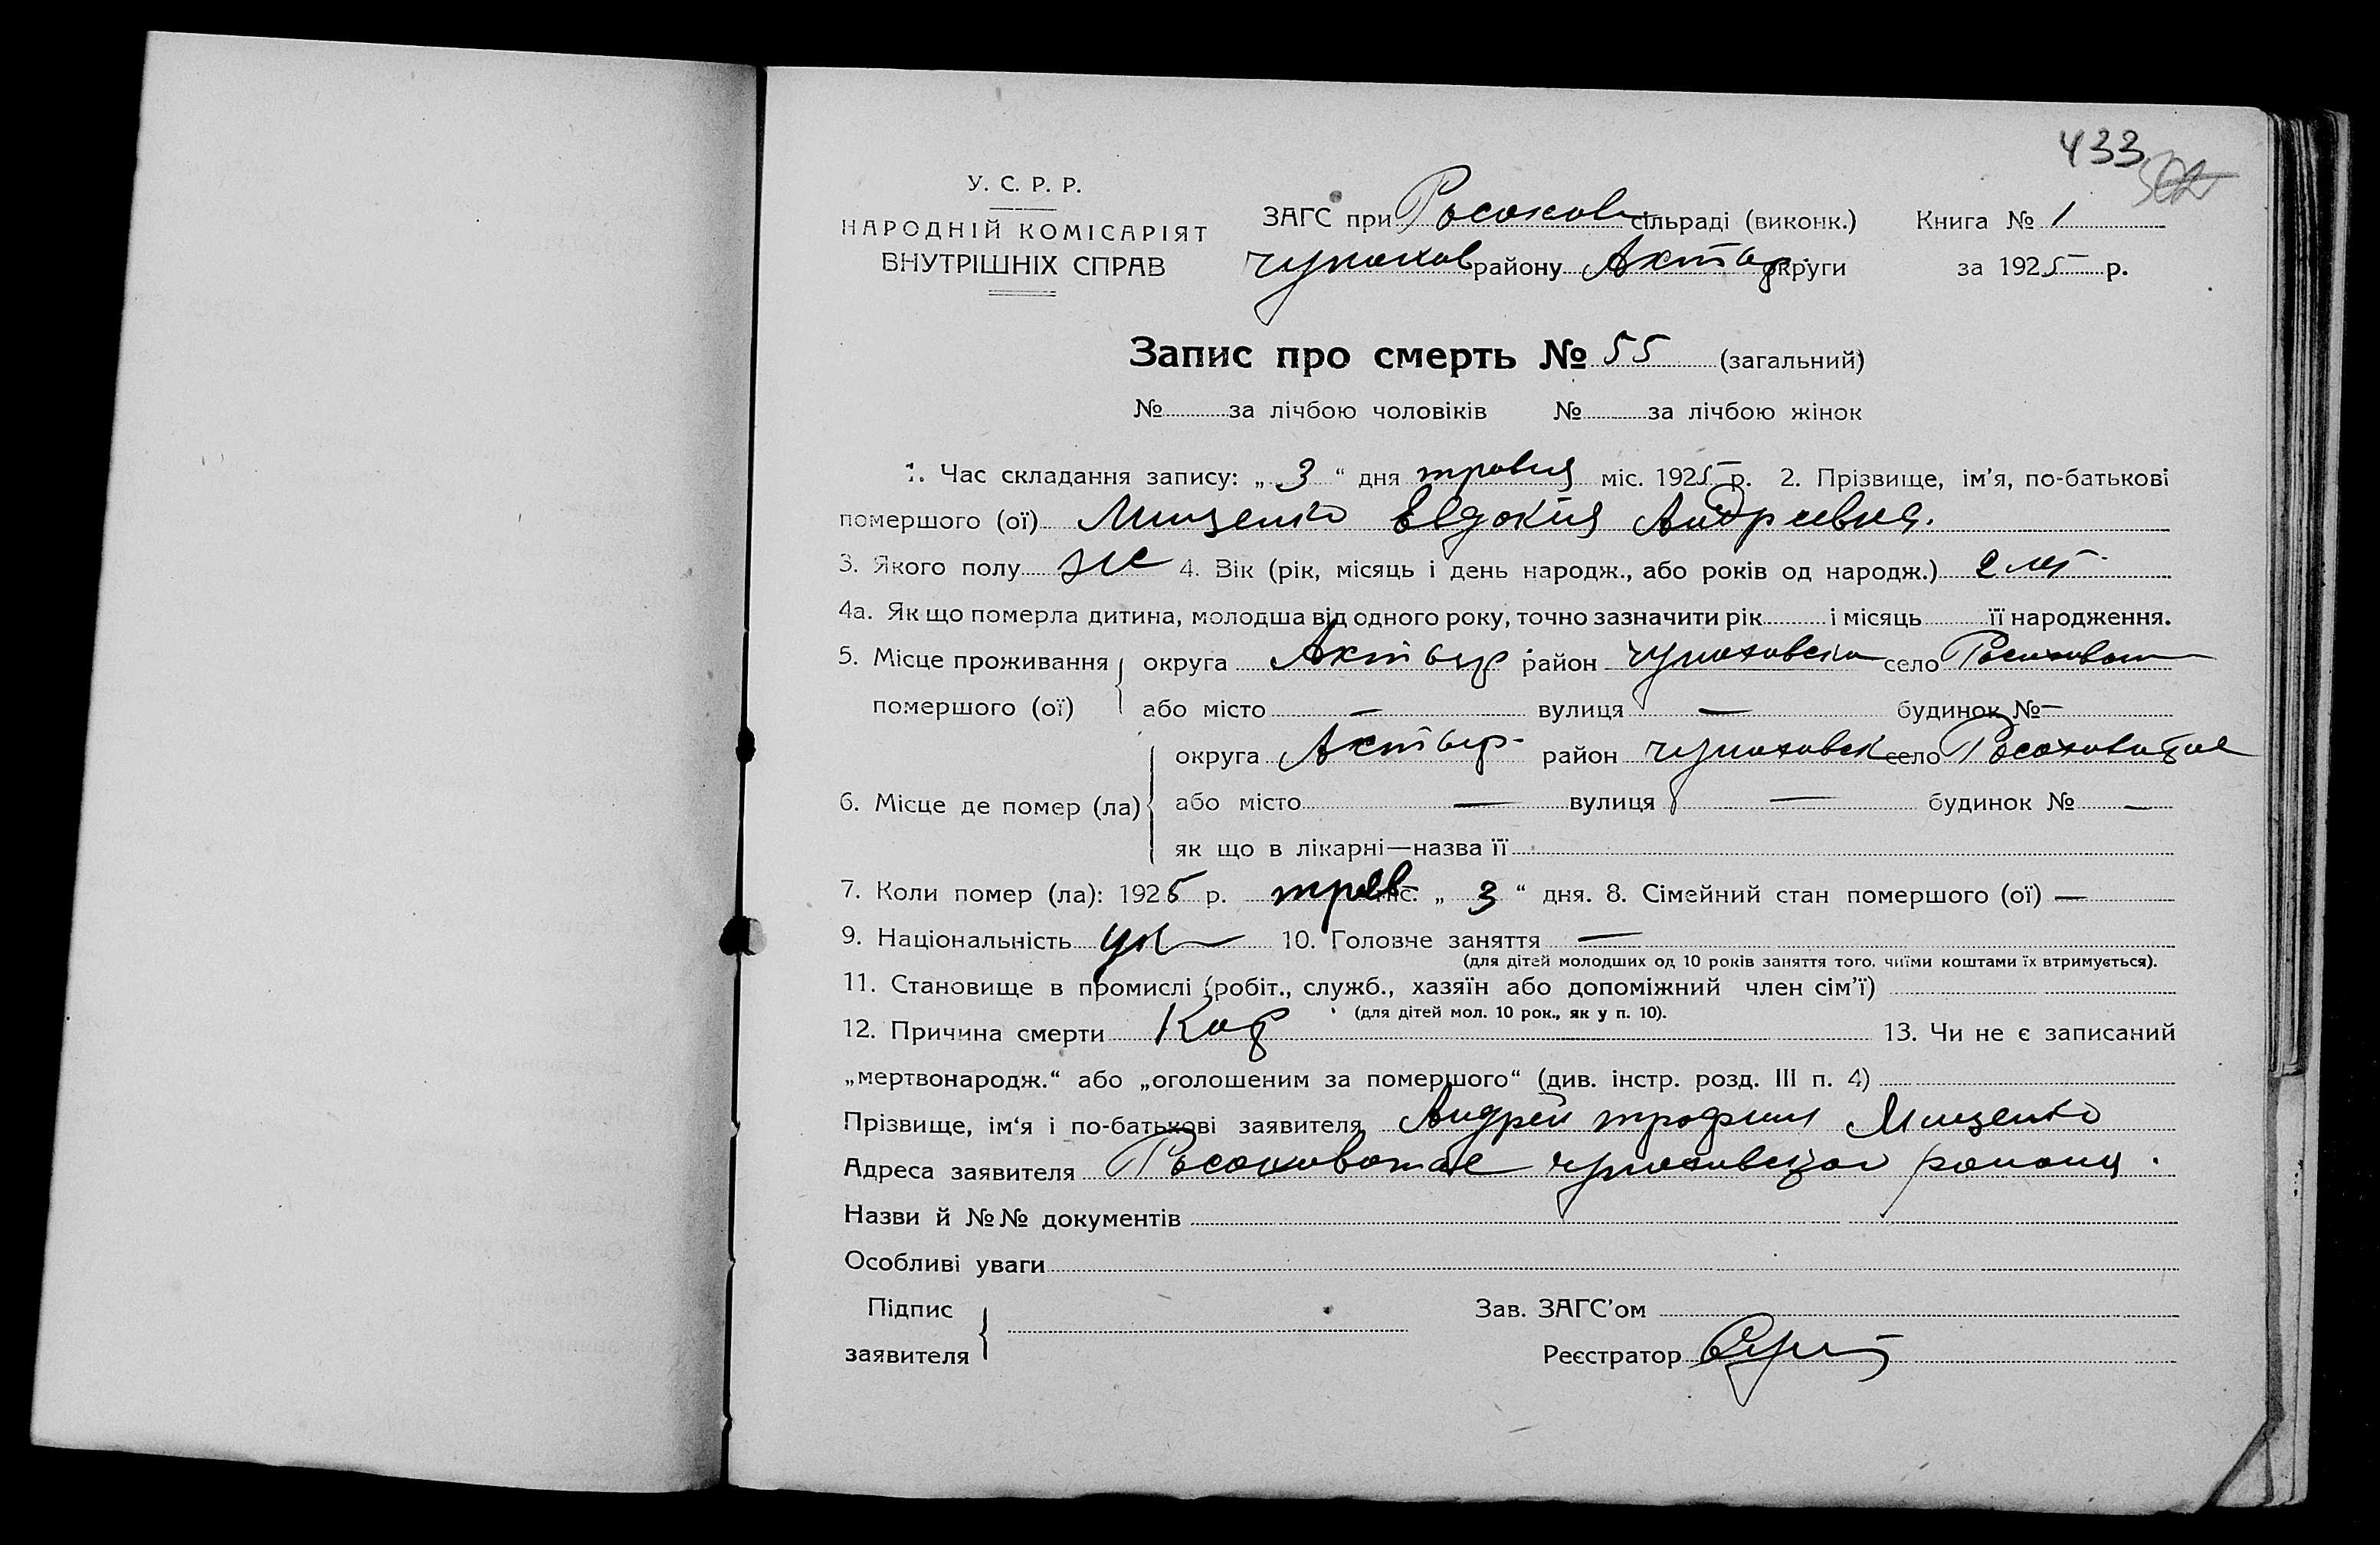 433
У. С. Р. Р.
НАРОДНІЙ КОМІСАРІЯТ
ВНУТРІШНІХ СПРАВ
ЗАГС при Росохов сільраді (виконк.) Книга № 1
Чупахов району Ахтыр округи за 1925 р.
Запис про смерть № 55 (загальний)
№ за лічбою чоловіків № за лічбою жінок
1. Час складання запису: „ 3 “ дня травня міс. 1925 р. 2. Прізвище, ім’я, по-батькові
помершого (ої) Мищенко Евдокия Андреевна.
3. Якого полу ж 4. Вік (рік, місяць і день народж., або років од народж.) 2 лет
4а. Як що померла дитина, молодша від одного року, точно зазначити рік і місяць її народження.
5. Місце проживання округа Ахтыр район Чупаховски село Росоховат
помершого (ої) або місто — вулиця — будинок № —
округа Ахтыр- район Чупаховск село Росоховатое
6. Місце де помер (ла) або місто — вулиця — будинок № —
як що в лікарні—назва її
7. Коли помер (ла): 1925 р. трав міс. „ 3 “ дня. 8. Сімейний стан помершого (ої) —
9. Національність ук 10. Головне заняття —
(для дітей молодших од 10 років заняття того, чиїми коштами їх втримується).
11. Становище в промислі (робіт., служб., хазяїн або допоміжний член сім’ї)
(для дітей мол. 10 рок., як у п. 10).
12. Причина смерти Кор 13. Чи не є записаний
„мертвонародж.“ або „оголошеним за помершого“ (див. інстр. розд. III п. 4)
Прізвище, ім‘я і по-батькові заявителя Андрей Трофим Мищенко
Адреса заявителя Росоховатое Чупаховского района.
Назви й №№ документів
Особливі уваги
Підпис Зав. ЗАГС’ом
заявителя Реєстратор